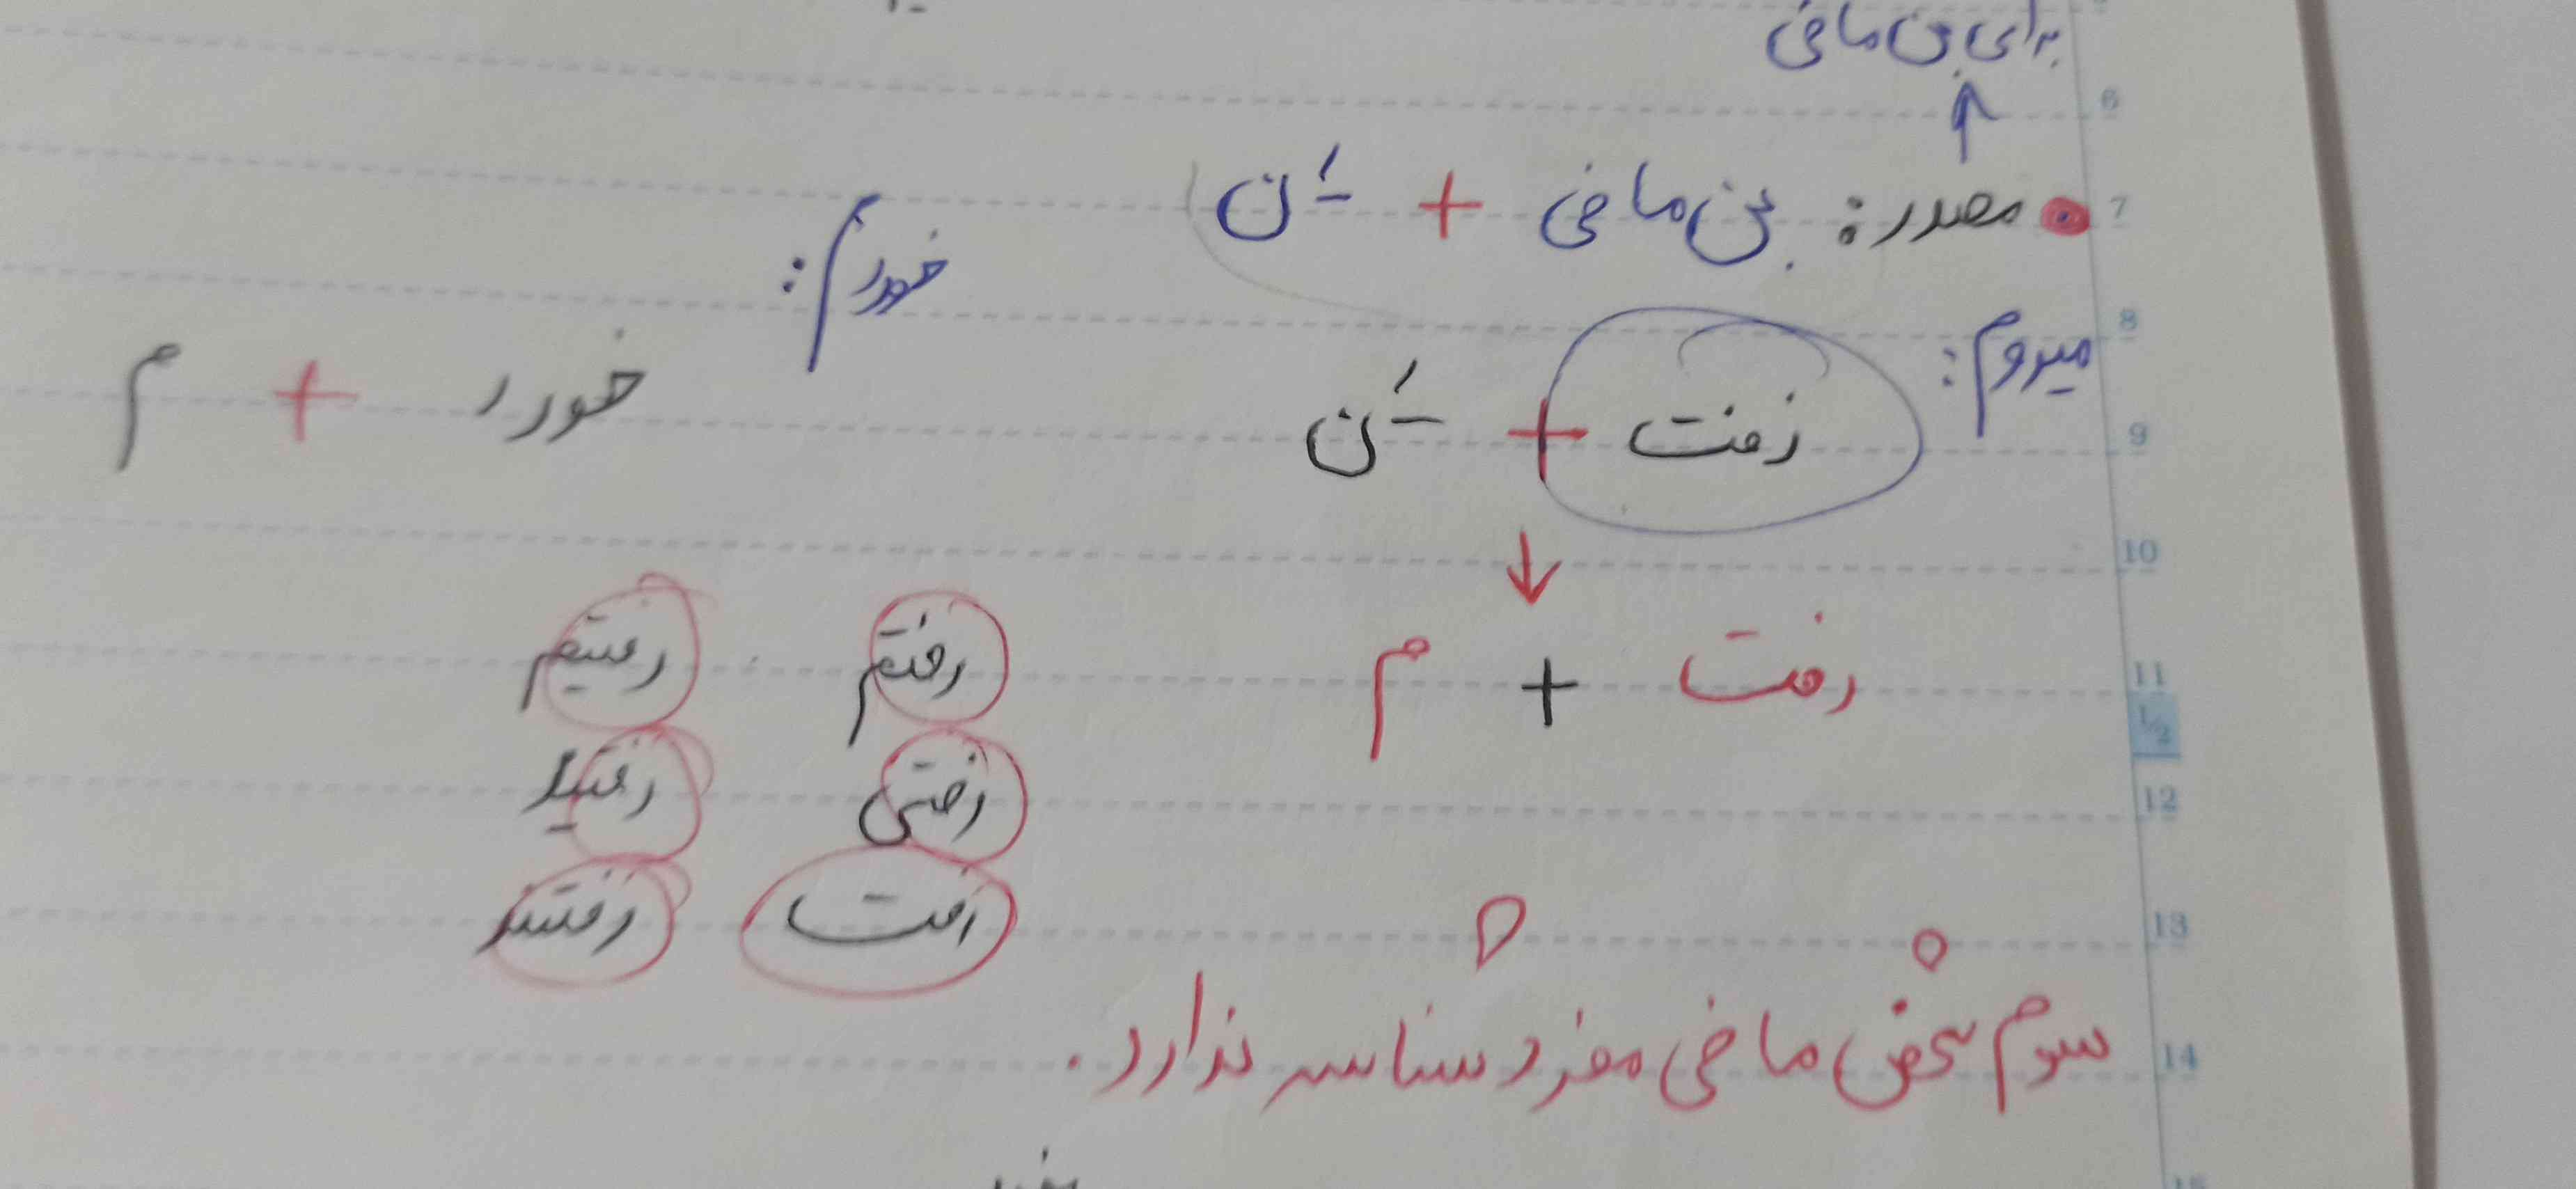 برای بن ماضی
مصدر: بن ماضی + ـَ ن
میروم: رفت + ـَ ن
خوردم: خورد + م
رفت + م
رفتم رفتیم
رفتی رفتید
رفت رفتند
سوم شخص ماضی مفرد شناسه ندارد.
6
7
8
9
10
11
1/2
12
13
14